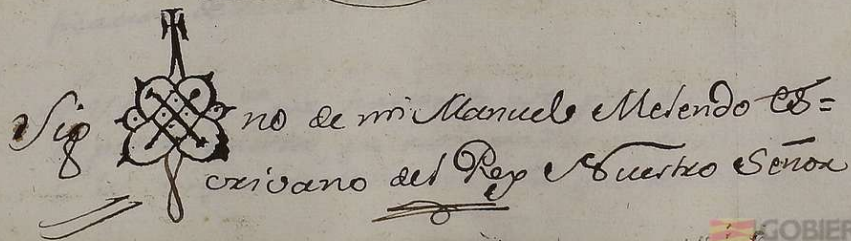 Sig no de mi Manuel Melendo es=
crivano del Rey Nuestro Señor
GOBIER